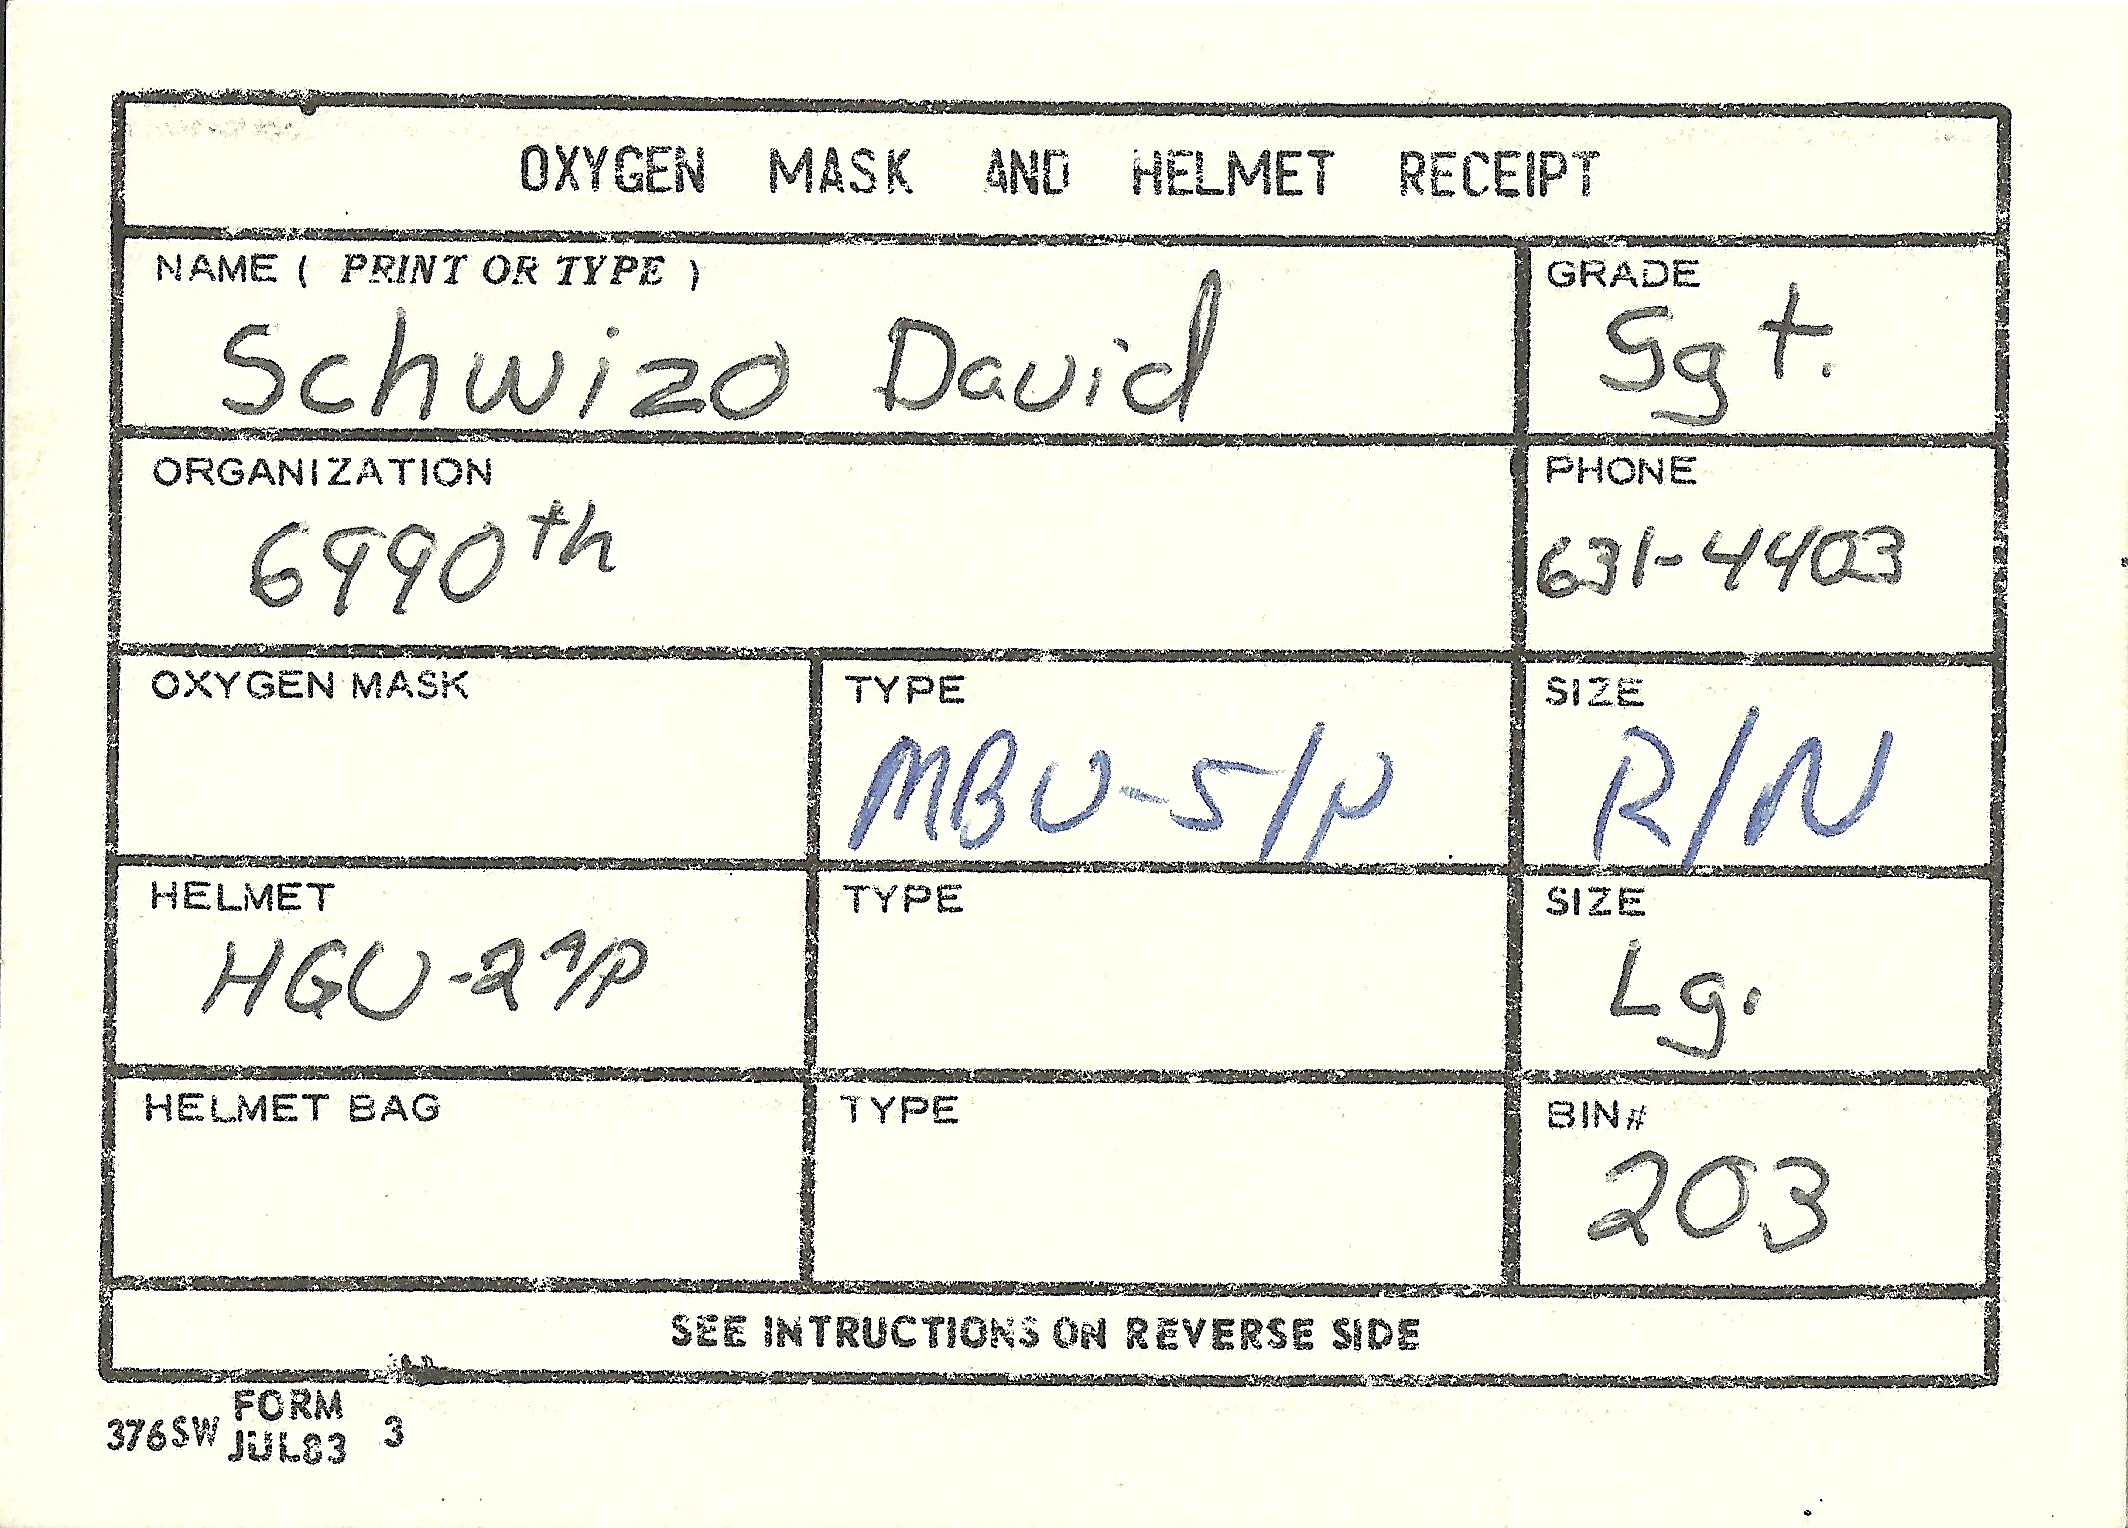 OXYGEN MASK AND HELMET RECEIPT
NAME ( PRINT OR TYPE )
Schwizo David
GRADE
Sgt.
ORGANIZATION
6990th
PHONE
631-4403
OXYGEN MASK
TYPE
MBU-5/P
SIZE
R/N
HELMET
HGU-29/P
TYPE
SIZE
Lg.
HELMET BAG
TYPE
BIN#
203
SEE INTRUCTIONS ON REVERSE SIDE
376SW FORM JUL83 3